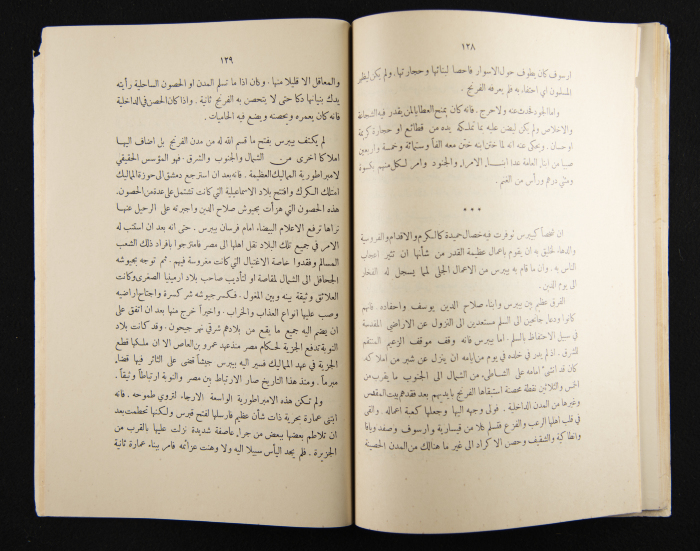 ١٢٨
ارسوف كان يطوف حول الاسوار فاحصا لبنائها وحجارتها . ولم يكن ليظهر
المسلمون اي احتفاء به فلم يعرفه الفرنج .
واما الجود فتحدث عنه ولا حرج . فانه كان يمنح العطايا لمن يقدر فيه الشجاعة
والاخلاص ولم يكن ليضن عليه بما تملكه يده من قطائع او حجارة كريمة
او حسان . ويحكى عنه انه لما ختن ابنه ختن معه الفا وستمائة وخمسة واربعين
صبيا من ابناء العامة عدا ابنـاء الامراء والجنود وامر لكل منهم بكسوة
ومئتي درهم ورأس من الغنم .
* * *
ان شخصاً كبيبرس توفرت فيه خصال حميدة كالكرم والاقدام والفروسية
والدهاء لخليق به ان يقوم باعمال عظيمة القدر من شأنها ان تثير اعجاب
الناس به . وان ما قام به بيبرس من الاعمال الجلى لمما يسجل له الفخار
الى يوم الدين .
الفرق عظيم بين بيبرس وابناء صلاح الدين يوسف واحفاده . فانهم
كانوا ودعاء جانحين الى السلم مستعدين الى النزول عن الاراضي المقدسة
في سبيل الاحتفاظ بالسلم . اما بيبرس فانه وقف موقف الزعيم المنتقم
للشرق . اذ لم يدر في خلده في يوم من ايامه ان ينزل عن شبر من املاكه .
كان قد انشىء امامه على الشـاطىء من الشمال الى الجنوب ما يقرب من
الخمس والثلاثين نقطة محصنة استبقاها الفرنج بايديهم بعد فقدهم بيت المقدس
وغيرها من المدن الداخلية . فولى وجهه اليها وجعلها كعبة اعماله . والقى
في قلب اهلها الرعب والفزع فتسلم كلا من قيسارية وارسوف وصفد ويافا
وانطاكية والشقيف وحصن الاكراد الى غير ما هنالك من المدن الحصينة
١٢٩
والمعاقل الا قليلا منها . وكان اذا ما تسلم المدن او الحصون الساحلية رأيته
يدك بنيانها دكا حتى لا يتحصن به الفرنج ثانية . واذا كان الحصن في الداخلية
فانه كان يعمره ويحصنه ويضع فيه الحاميات .
لم يكتف بيبرس بفتح ما قسم الله له من مدن الفرنج بل اضاف اليـها
املاكا اخرى من الشمال والجنوب والشرق . فهو المؤسس الحقيقي
لامبراطورية المماليك العظيمة . فانه بعد ان استرجع دمشق الى حوزة المماليك
امتلك الكرك وافتتح بلاد الاسماعيلية التي كانت تشتمل على عدة من الحصون .
هذه الحصون التي هزأت بجيوش صلاح الدين واجبرته على الرحيل عنهـا
نراها ترفع الاعلام البيضاء امام فرسان بيبرس . حتى انه بعد ان استتب له
الامر في جميع تلك البلاد نقل اهلها الى مصر فامتزجوا بافراد ذلك الشعب
المسالم وفقدوا خاصة الاغتيال التي كانت مغروسة فيهم . ثم توجه بجيوشه
الجحافل الى الشمال لمقاصة او لتأديب صاحب بلاد ارمينيا الصغرى وكانت
العلائق وثيقة بينه وبين المغول . فكسر جيوشه شر كسرة واجتاح اراضيه
وصب عليها انواع العذاب والخراب . واخيراً خرج منها بعد ان اتفق على
ان يضم اليه جميع ما يقع من بلادهم شرقي نهر جيحون . وقد كانت بلاد
النوبة تدفع الجزية لحكام مصر منذ عهد عمرو بن العاص الا ان ملكها قطع
الجزية في عهد المماليك فسير اليه بيبرس جيشاً قضى على الثائر فيها قضاء
مبرماً . ومنذ هذا التاريخ صار الارتباط بين مصر والنوبة ارتباطاً وثيقاً .
ولم تمكن هذه الامبراطورية الواسعة الارجاء لتروي طموحه . فانه
ابتنى عمارة بحرية ذات شأن عظيم فارسلها لفتح قبرس ولكنها تحطمت بعد
ان تلاطم بعضها ببعض من جراء عاصفة شديدة نزلت عليها بالقرب من
الجزيرة . فلم يجد اليأس سبيلا اليه ولا وهنت عزائمه فامر ببناء عمارة ثانية